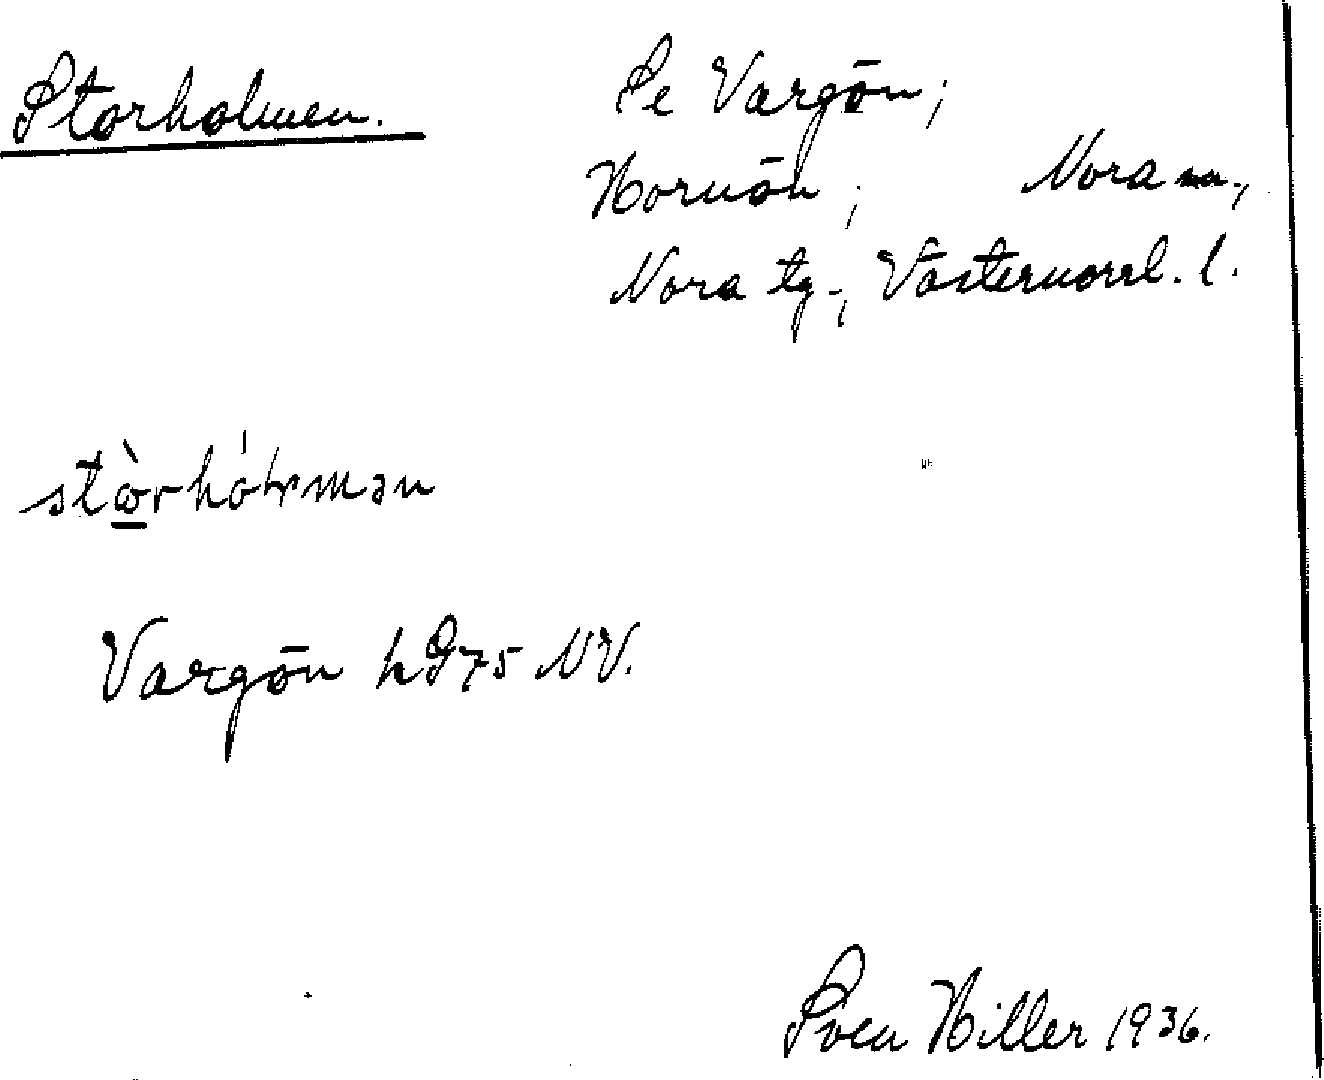 Storholmen.
Se Vargön;
Hornön; Nora sn.,
Nora tg., Västernorrl. l.
stòrhólmən
Vargön h975 NV.
Sven Hiller 1936.